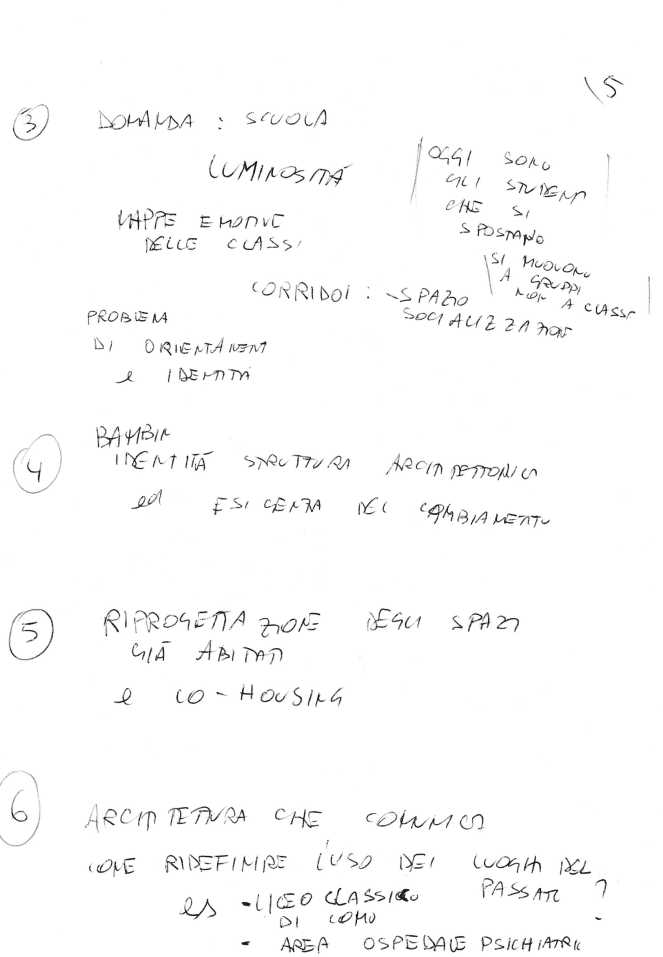 \5
3 DOMANDA : SCUOLA
LUMINOSITÁ
MAPPE EMOTIVE
DELLE CLASSI
OGGI SONO
GLI STUDENTI
CHE SI
SPOSTANO
SI MUOVONO
A GRUPPI
NON A CLASSI
CORRIDOI : - SPAZIO
SOCIALIZZAZIONE
PROBLEMA
DI ORIENTAMENTO
e IDENTITÀ
4 BAMBINI
IDENTITÁ STRUTTURA ARCHITETTONICA
ed ESIGENZA DEL CAMBIAMENTO
5 RIPROGETTAZIONE DEGLI SPAZI
GIÀ ABITATI
e CO-HOUSING
6 ARCHITETTURA CHE COMUNICA
COME RIDEFINIRE L'USO DEI LUOGHI DEL
PASSATO ?
es - LICEO CLASSICO
DI COMO
- AREA OSPEDALE PSICHIATRIC